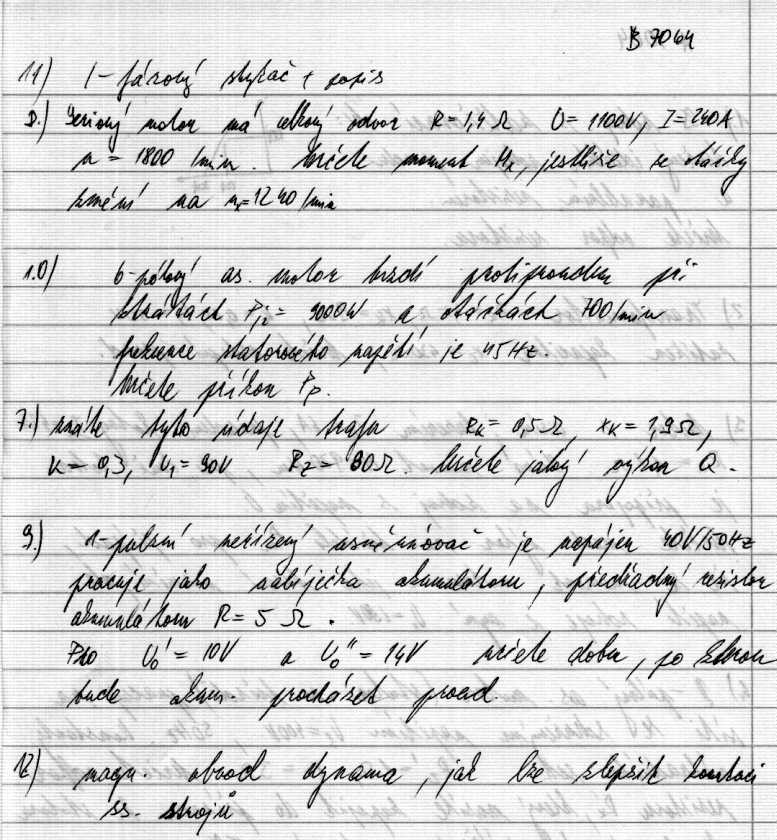 B 7064
11) 1-fázový stykač + popis
8.) Seriový motor má celkový odpor R = 1,4 Ω U = 1100V, I = 240A
n = 1800 /min. Určete moment Mx, jestliže se otáčky
změní na nx = 1240 /min
10) 6-pólový as. motor brzdí protiproudem při
ztrátách Pj2 = 9000W a otáčkách 700/min
frekvence statorového napětí je 45Hz.
Určete příkon Pp.
7.) znáte tyto údaje trafa RK = 0,5Ω, XK = 1,9Ω,
K = 0,3, U1 = 90V RZ = 80Ω. Určete jalový výkon Q.
9.) 1-pulzní neřízený usměrňovač je napájen 40V/50Hz
pracuje jako nabíječka akumulátoru, předřadný rezistor
akumulátoru R = 5 Ω.
Pro U0' = 10V a U0'' = 14V určete dobu, po kterou
bude akum. procházet proud.
12) magn. obvod dynama, jak lze zlepšit komutaci
ss. strojů